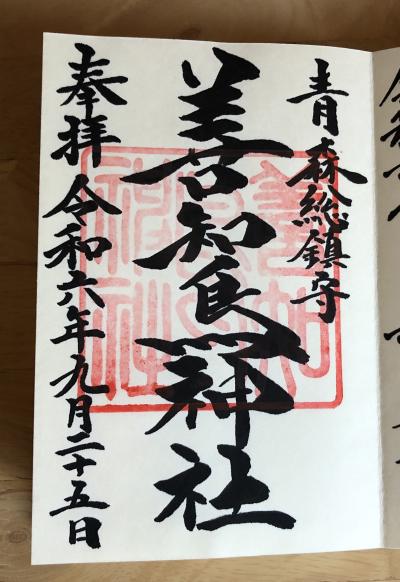 青森総鎮守
善知鳥神社
奉拝 令和六年九月二十五日